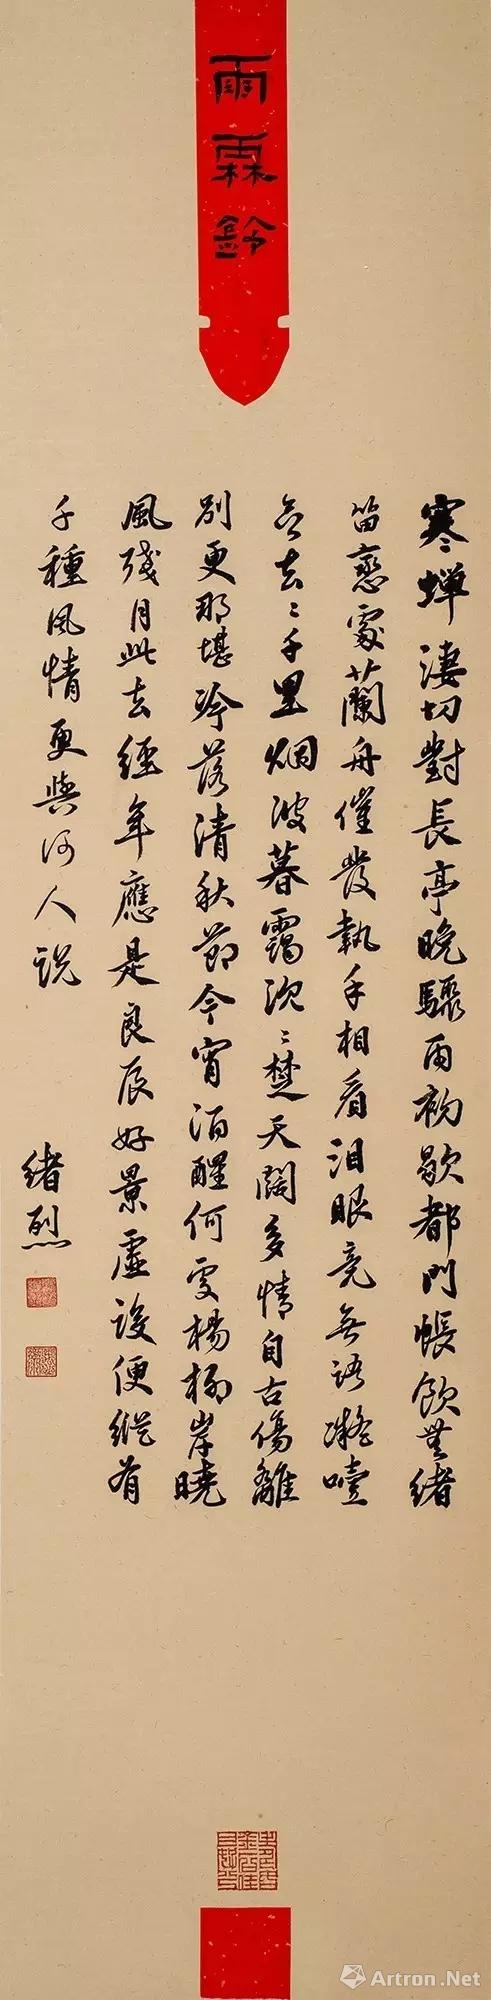 雨霖鈴
寒蟬淒切對長亭晚驟雨初歇都門帳飲無緒
留戀處蘭舟催發執手相看泪眼竟無語凝噎
念去〻千里烟波暮靄沉〻楚天闊多情自古傷離
別更那堪冷落清秋節今宵酒醒何處楊柳岸曉
風殘月此去經年應是良辰好景虛設便縱有
千種風情更與何人說
緒烈
Artron.Net